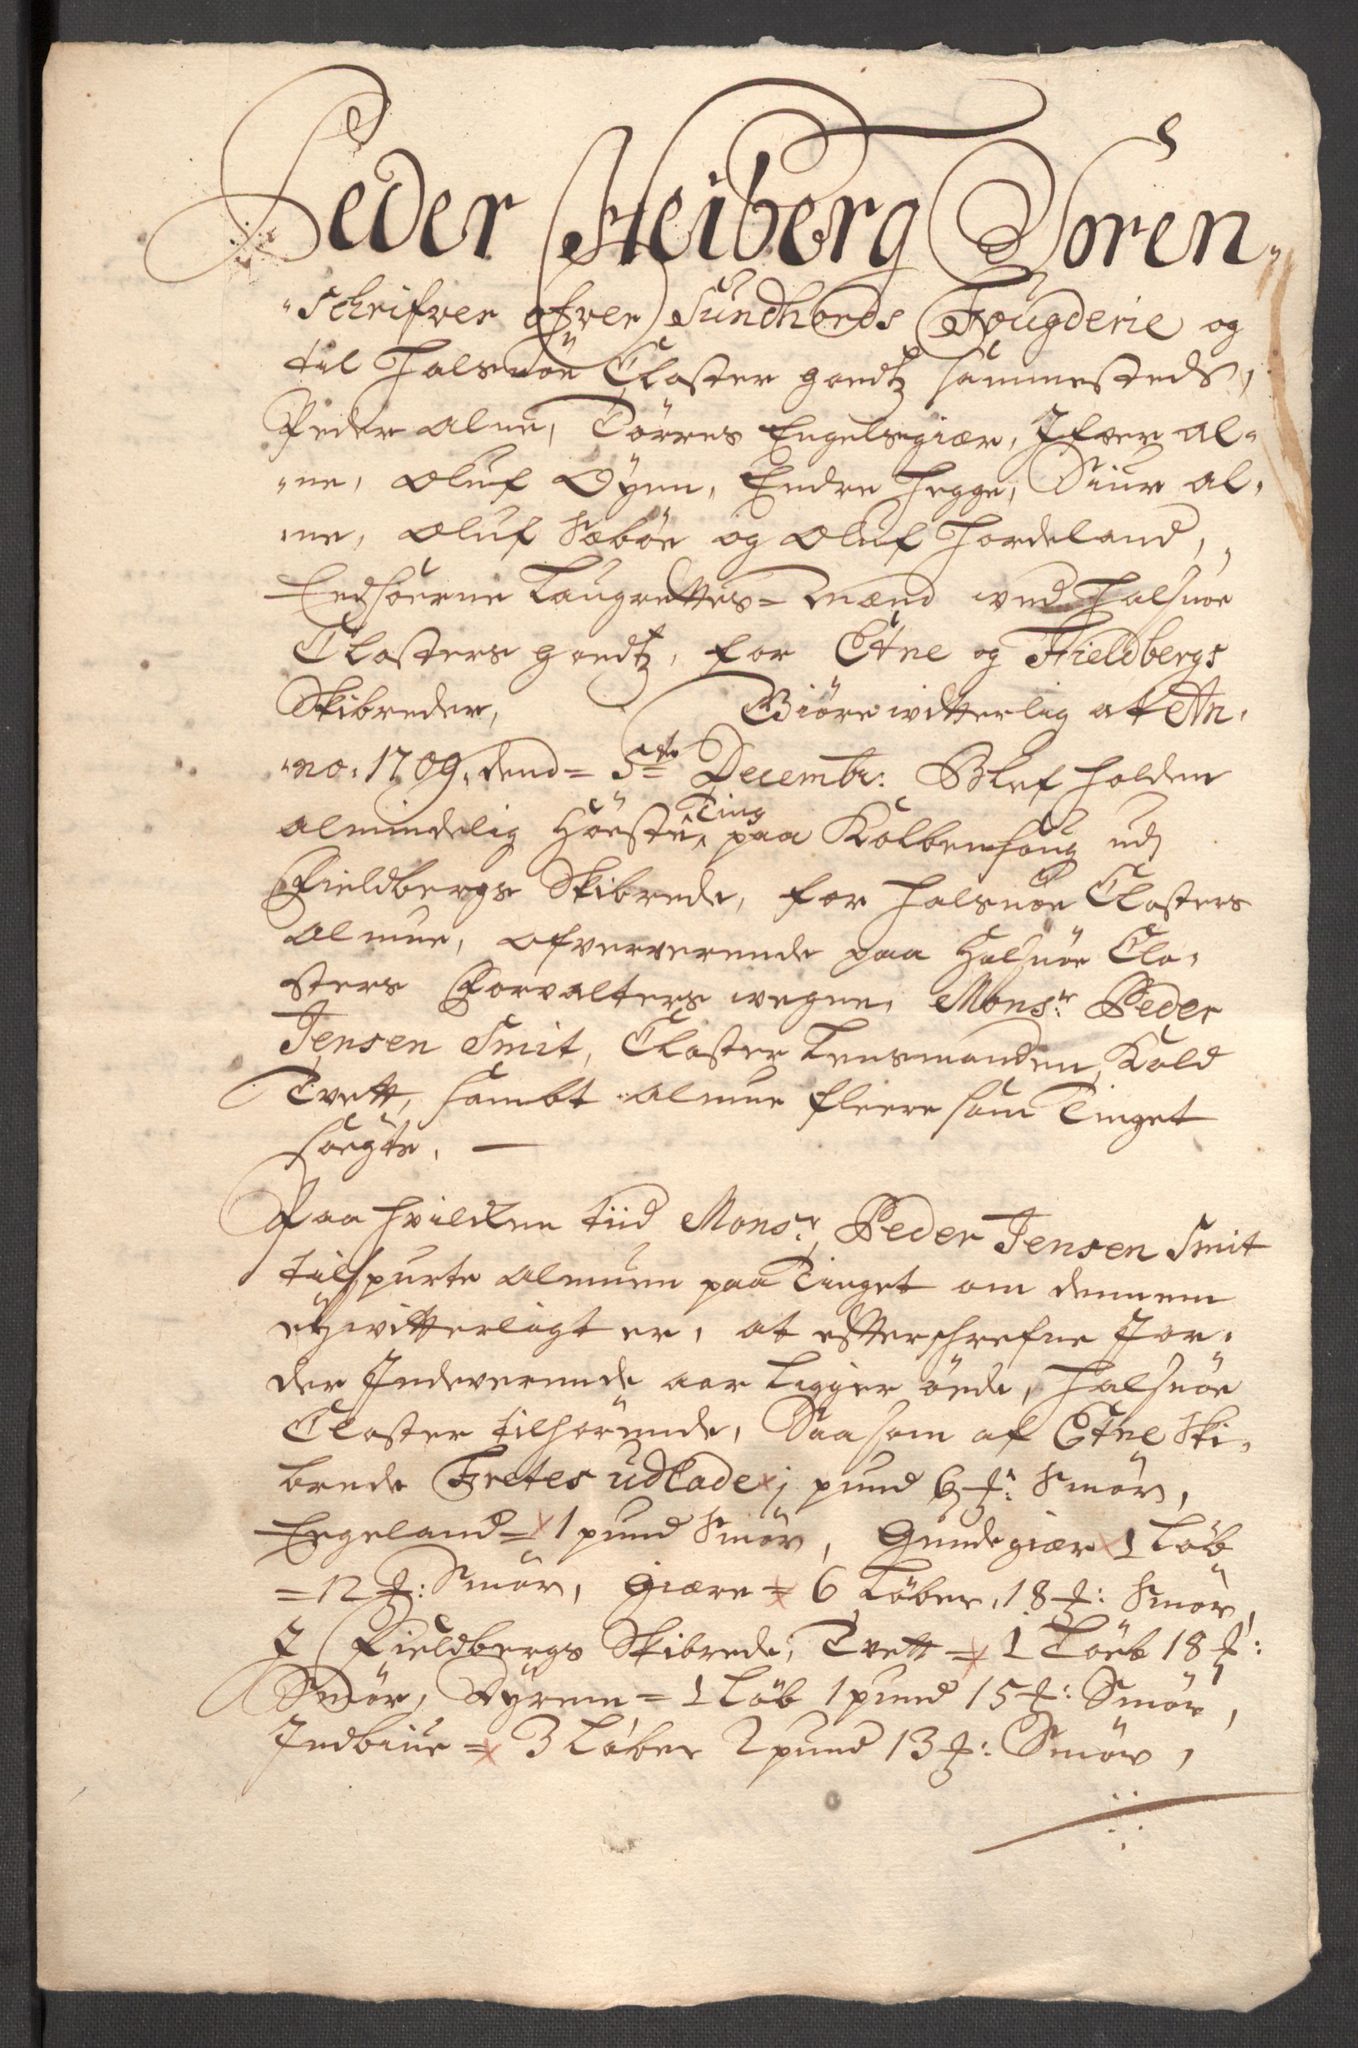 Peder Heiberg Soren-
-Schrifver ofver Sundhords Fougderie og
til Halsnöe Closter goedtz sammesteds,
Peder Alne, Törres Engelsgiær, Ifver Al-
-ne, Oluf Öÿen, Endre Hegge, Siur Al-
ne, Oluf Sæböe og Oluf Hordeland,
Eedsoerne Laugrettes-Mænd ved Halsnöe
Closters goedtz, for Etne og Fieldbergs
Skibreder, Giöre vitterlig at An-
-no: 1709, dend= 5te Decembr: Blef holden
almindelig Höste Ting paa Kolbenshoug udj
Fieldbergs Skibrede, for Halsnöe Closters
Almue, ofververende paa Halsnöe Clo-
sters Forvalters vegne, Monsr: Peder
Jensen Smit, Closter Lensmanden, Kold
Tvett, sambt Almue fleere som Tinget
söegte.
Paa hvilken tiid Monsr: Peder Jensen Smit
tilspurte Almuen paa Tinget om dennem
eÿ vitterligt er, at efterschrefne Jor-
der Indeverende aar ligger öede, Halsnöe
Closter tilhörende, Saasom af Etne Ski-
brede Fretes udlade j pund 6 ℔: Smör,
Eegeland= 1 pund Smör, Gundegiær 1 Löb
=12 ℔: Smör, Giære= 6 Löber, 18 ℔: Smör,
J Fieldbergs Skibrede, Tvett= 1 Löeb 18 ℔:
Smör, Dÿrem= 1 Löb 1 pund 15 ℔: Smör,
Indbiue= 3 Löber 2 pund 13 ℔: Smör,